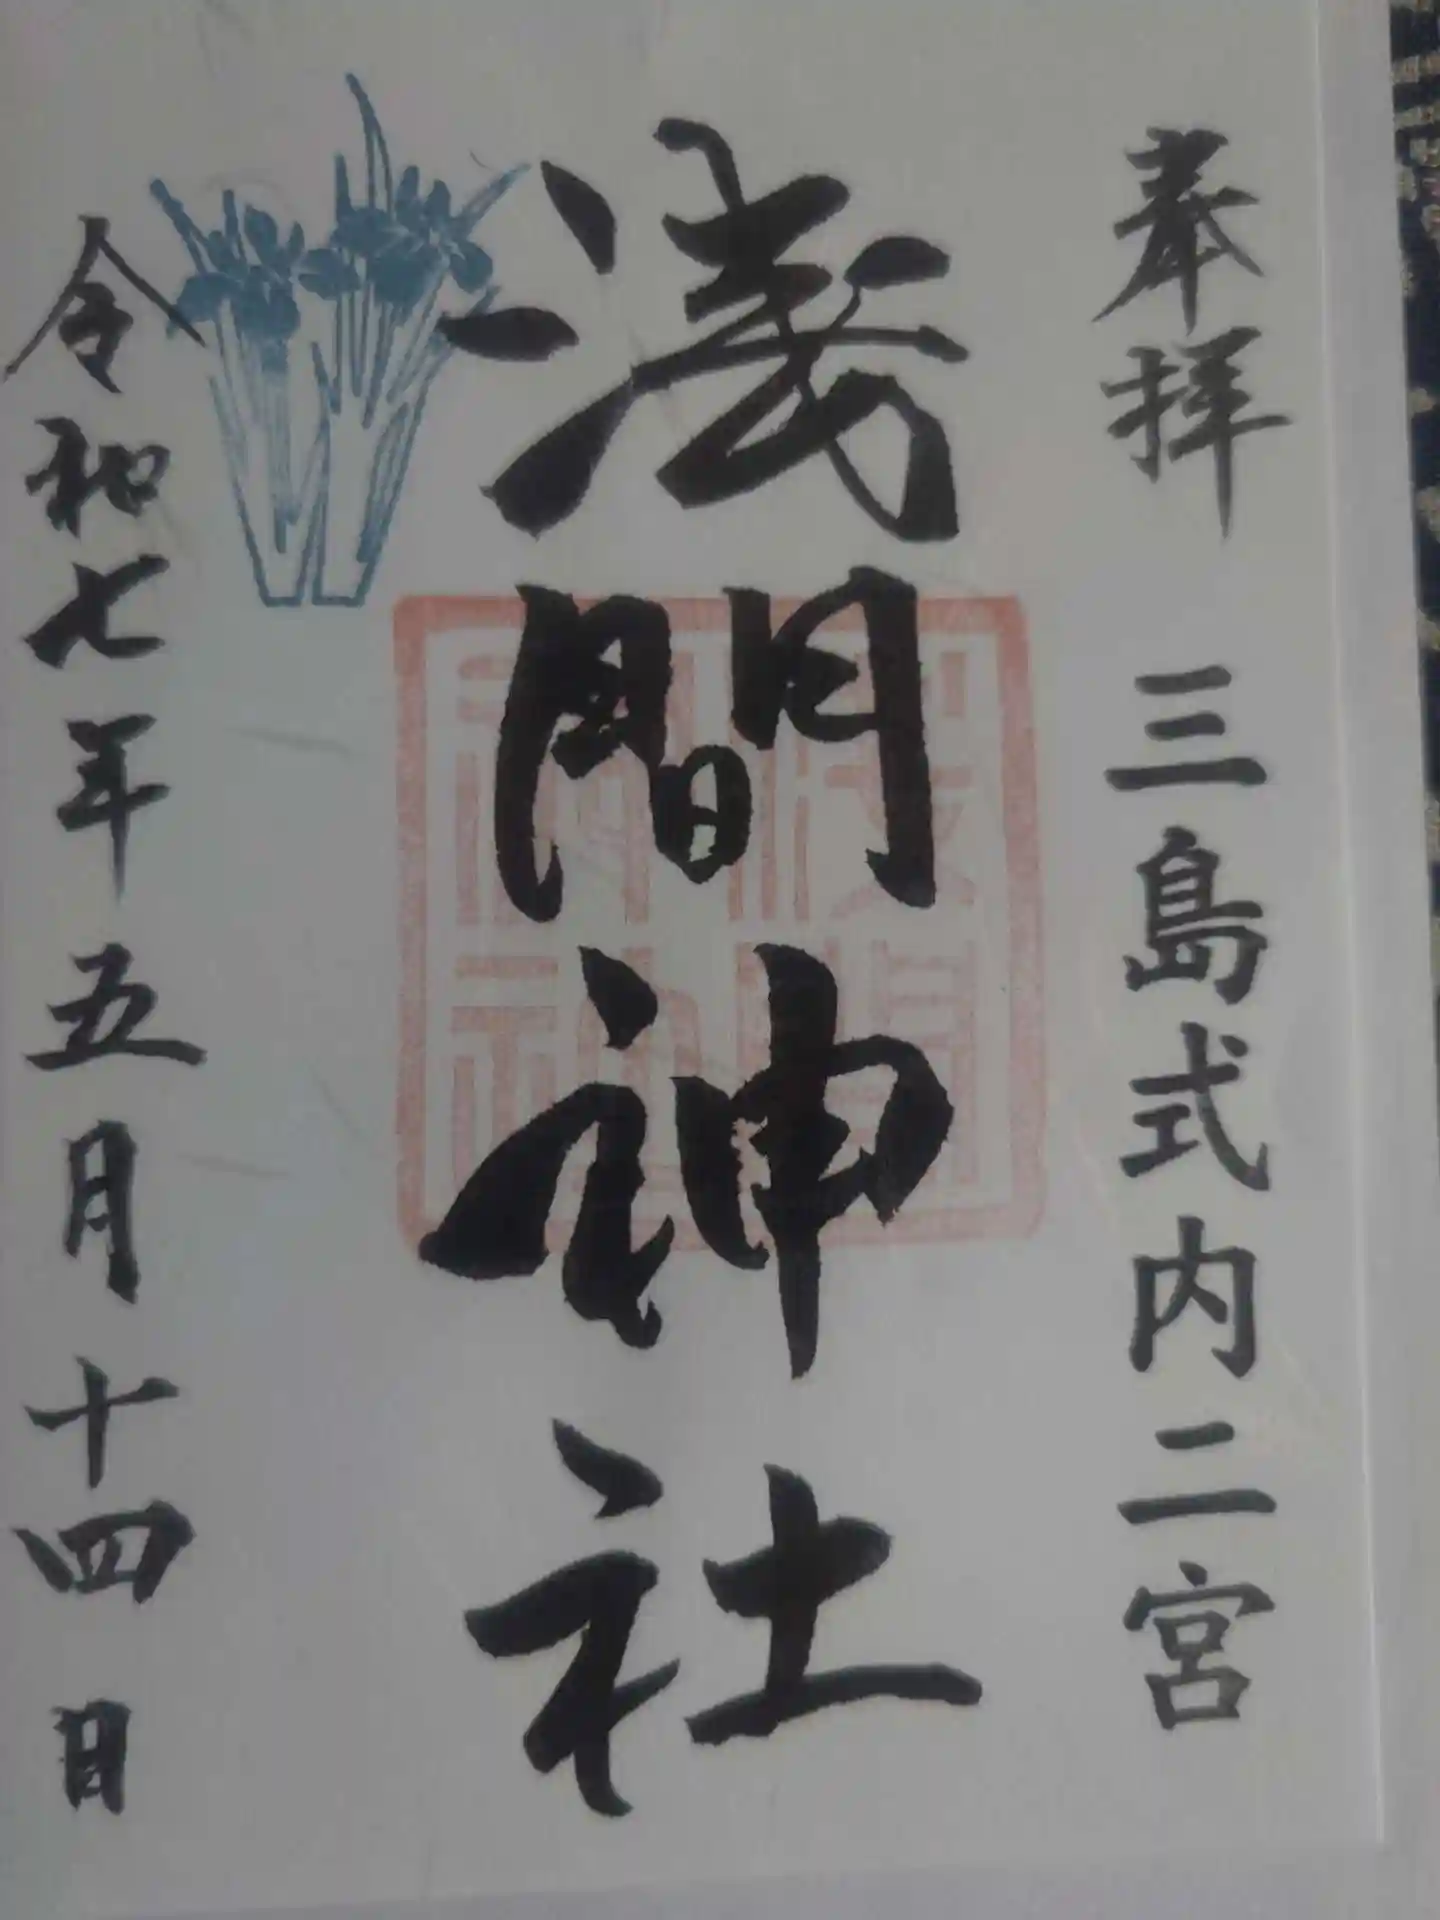 奉拝 三島式内二宮
淺間神社
令和七年五月十四日